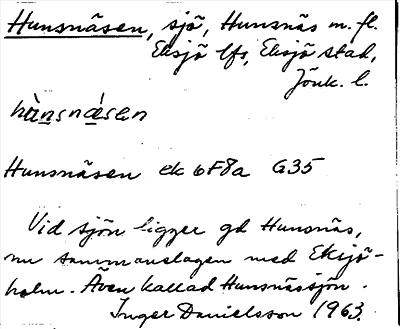 Hunsnäsen, sjö, Hunsnäs m. fl.
Eksjö lfs, Eksjö stad,
Jönk. l.
hùnsnæ̀sen
Hunsnäsen ek 6F8a G35
Vid sjön ligger gd Hunsnäs,
nu sammanslagen med Eksjö-
holm. Även kallad Hunsnässjön.
Inger Danielsson 1963.